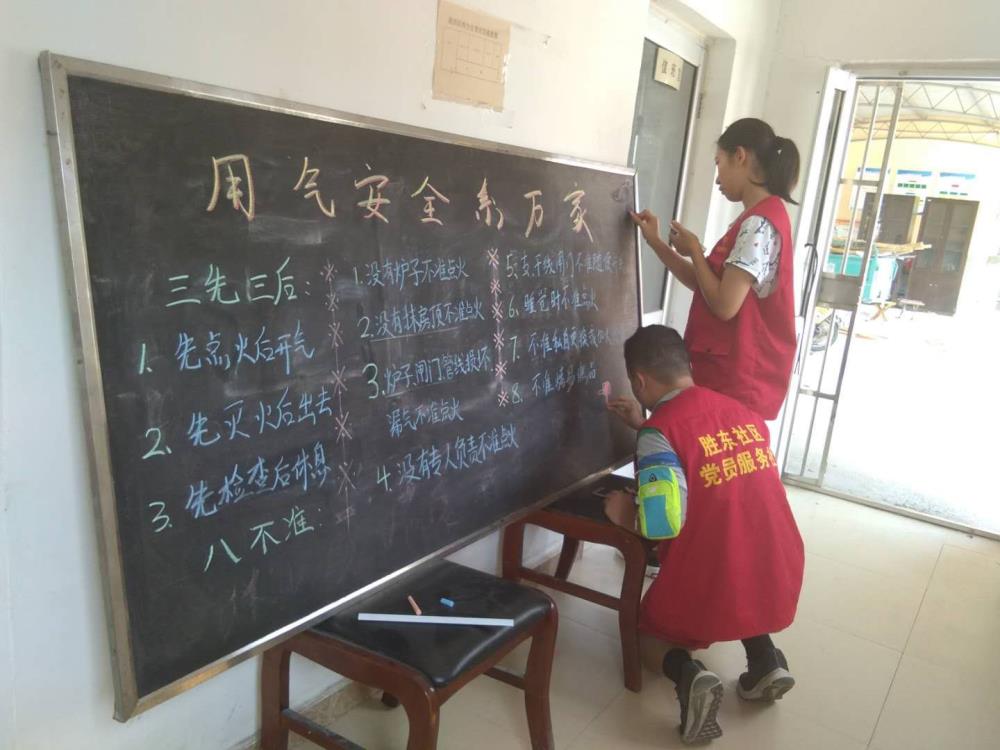 用气安全系万家
三先三后:
1. 先点火后开气
2. 先灭火后出去
3. 先检查后休息
八不准:
1. 没有炉子不准点火
2. 没有抹房顶不准点火
3. 炉子闸门管线损坏
漏气不准点火
4. 没有专人负责不准点火
5. 支、干线闸门不准随便
6. 睡觉时不准点火
7. 不准私自更换
8. 不准
胜东社区
党员服务